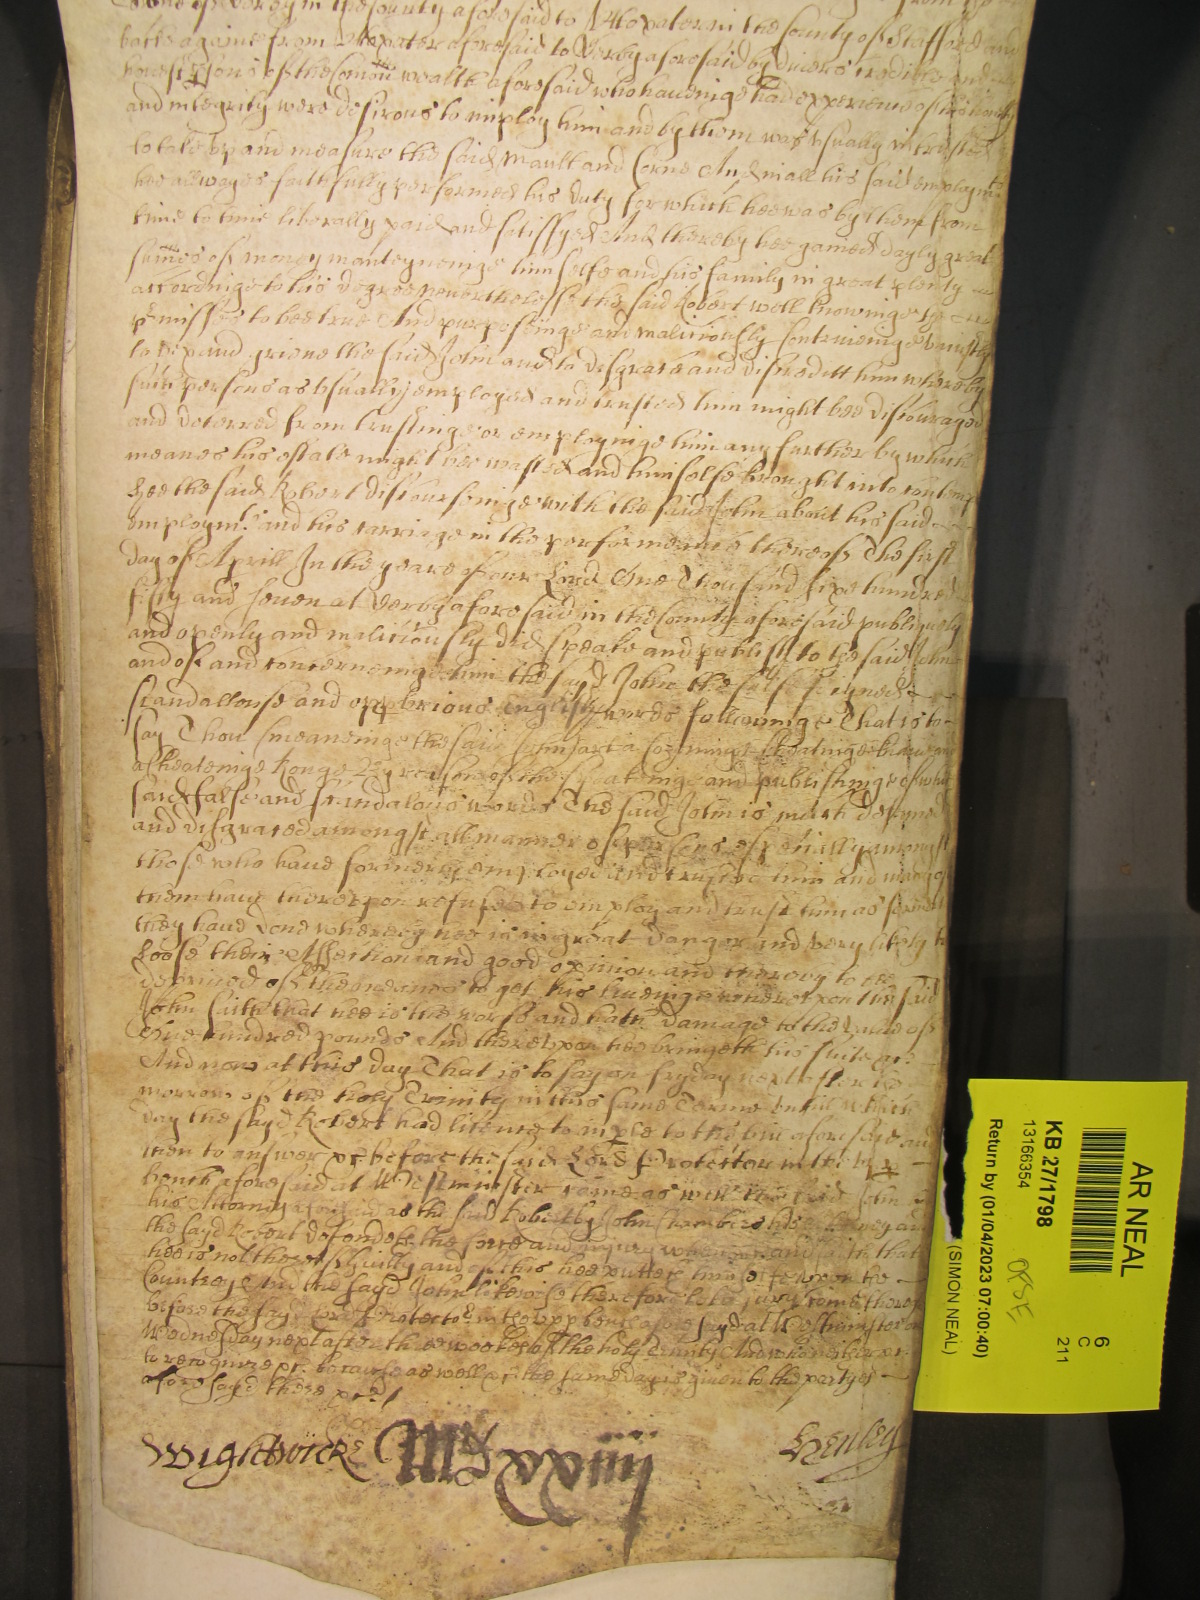 in the County aforesaid to Uttoxater in the County of Stafford and
backe againe from Uttoxater aforesaid to Derby aforesaid by divers traders and
honest psons of the Comon wealth aforesaid who haveinge had experience of his honesty
and integrity were desirous to imploy him and by them was usually intrusted
to take up and measure the said Mault and Corne And in all his said employmts
hee allwayes faithfully performed his duty for which hee was by them from
time to time liberally paid and satisfyed And thereby hee gained dayly great
summes of money manteyneinge himselfe and his family in great plenty
accordinge to his degree neverthelesse the said Robert well knowinge the
pmisses to bee true And purposeinge and maliciously contriveinge unjustly
to vex and grieve the said John and to disgrace and discreditt him whereby
such persons as usually employed and trusted him might bee discouraged
and deterred from trustinge or employinge him any further by which
meanes his estate might bee wasted and himselfe brought into contempt
Hee the said Robert discourseinge with the said John about his said
employmt. and his carriage in the performeance thereof The first
day of Aprill In the yeare of our Lord One Thousand six hundred
fifty and seven at Derby aforesaid in the County aforesaid publiquely
and openly and malitiously did speake and publish to the said John
and of and concerneinge him the sayd John the false feigned
scandallouse and opprbrious English words followinge That is to
say Thou (meaneinge the said John) art a cheatinge knave and
a cheateinge Rouge By reason of the speakeinge and publishinge of which
said false and scandalous words The said John is much defamed
and disgraced amongst all manner of persons especially amongst
those who have formerly employed and trusted him and many of
them have thereupon refused to employ and trust him as formerly
they have done whereby hee is in great danger and very likely to
Loose their Affection and good opinion and thereby to bee
deprived of the meanes to get his liveinge whereupon the said
John saith that hee is the worse and hath damage to the value of
One hundred pounds And thereupon hee bringeth his suite &c
And now at this day That is to say on fryday next after the
morrow of the holy Trinity in this same Terme untill which
day the sayd Robert had licence to imple to the bill aforesaid and
then to answer &c before the said Lord Protector in the upp
bench aforesaid at Westminster came as well the said John
his Attorney aforesaid as the said Robert by John Chambers his Attorney and
the sayd Robert defendeth the force and injury whensoever and saith that
hee is not thereof Guilty and of this hee putteth himselfe upon the
Countrye And the sayd John likewise therefore lett a jury come thereof
before the sayd Lord Protector in the upp bench aforesayd att Westminster on
Wednesday next after three weekes of the holy Trinity And who neither &c
to recognize &c because as well &c the same day is given to the partyes
aforesayd there &c
Wightwicke
Henley
AR NEAL
6
C
211
KB 27/1798
13166354
OPSE
Return by (01/04/2023 07:00:40)
(SIMON NEAL)